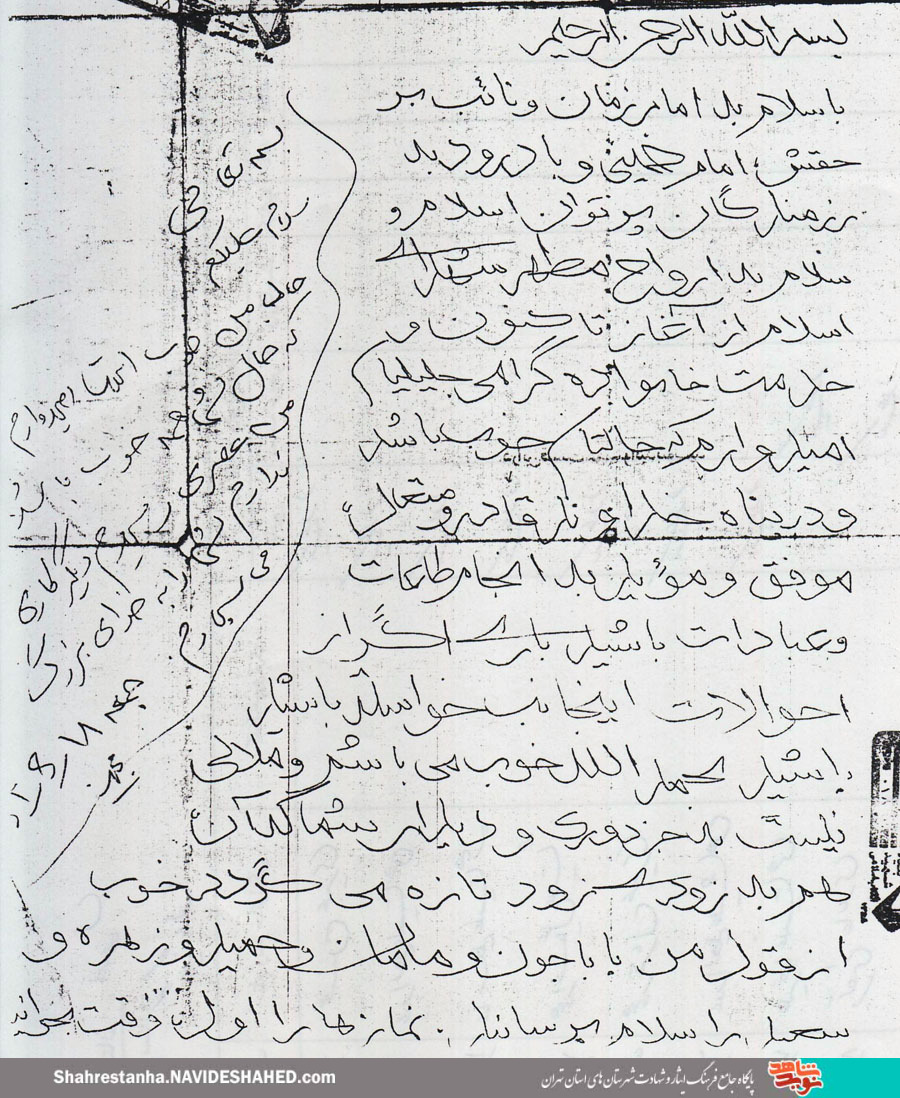 بسم الله الرحمن الرحیم
باسلام به امام زمان و نائب بر
حقش، امام خمینی و با درود به
رزمندگان پرتوان اسلام و
سلام به ارواح مطهر شهدای
اسلام از آغاز تا کنون و
خدمت خانواده گرامی
امیدوارم که حالتان خوب باشد
و در پناه خداوند قادر و متعال
موفق و مؤید به انجام طاعات
وعبادات باشید باری اگر از
احوالات اینجانب خواسته باشید
باشید بحمد الله خوب می باشم و ملالی
نیست بجز دوری و دیدار شما که آن
هم به زودی زود تازه می گردد خوب
از قول من بابا جون و مامان و حمید و زهره و
سعید را سلام برسانید. نمازها را اول وقت بخوانید
بسمه تعالی
سلام علیکم
حال من خوب است امیدوارم
که حال همه خوب باشد
من عرض دیگری ندارم
را به خدای بزرگ
می سپارم
جمعه
Shahrestanha.NAVIDESHAHED.com
پایگاه جامع فرهنگ ایثار و شهادت شهرستان های استان تهران
نوید شاهد